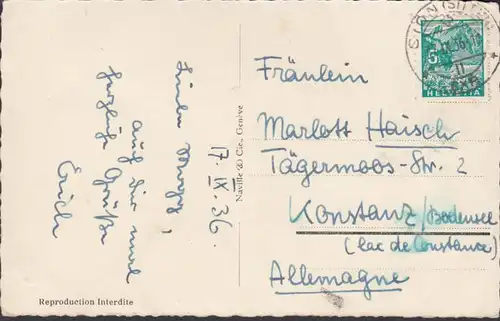 17. IX. 36.
auf dir
herzliche Grüße
Erich
Reproduction Interdite
Naville & Cie., Genève
SION (SITTEN)
5
HELVETIA
Fräulein
Marlott Haisch
Tägermoos-Str. 2
Konstanz/Bodensee
(lac de Constance)
Allemagne